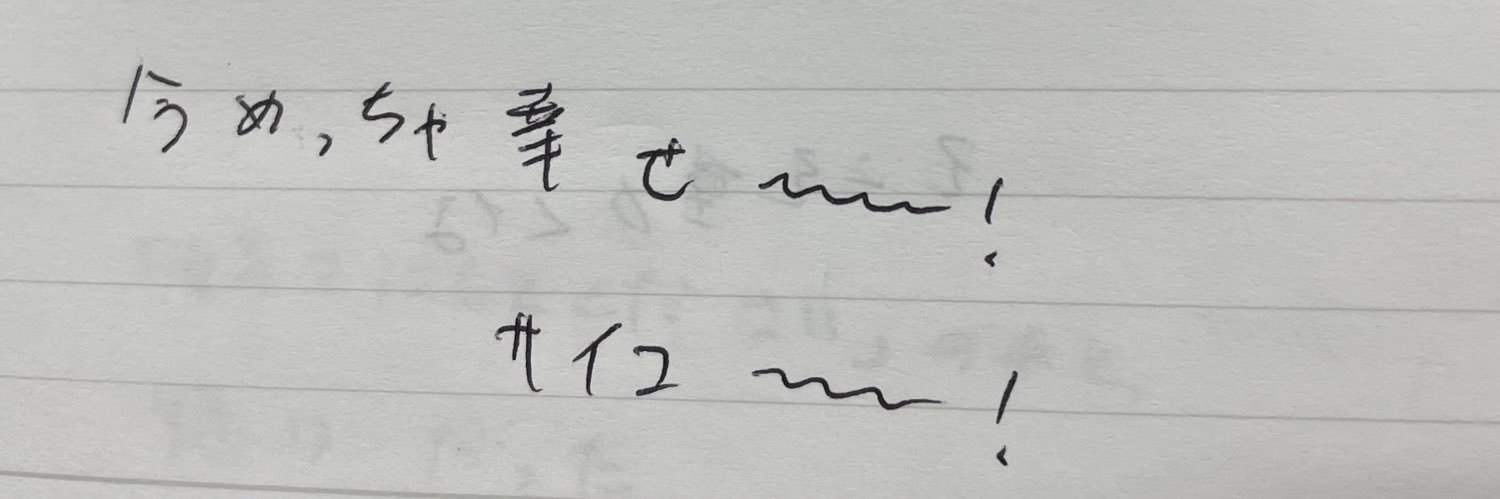 今めっちゃ幸せ〜〜!
サイコ〜〜!